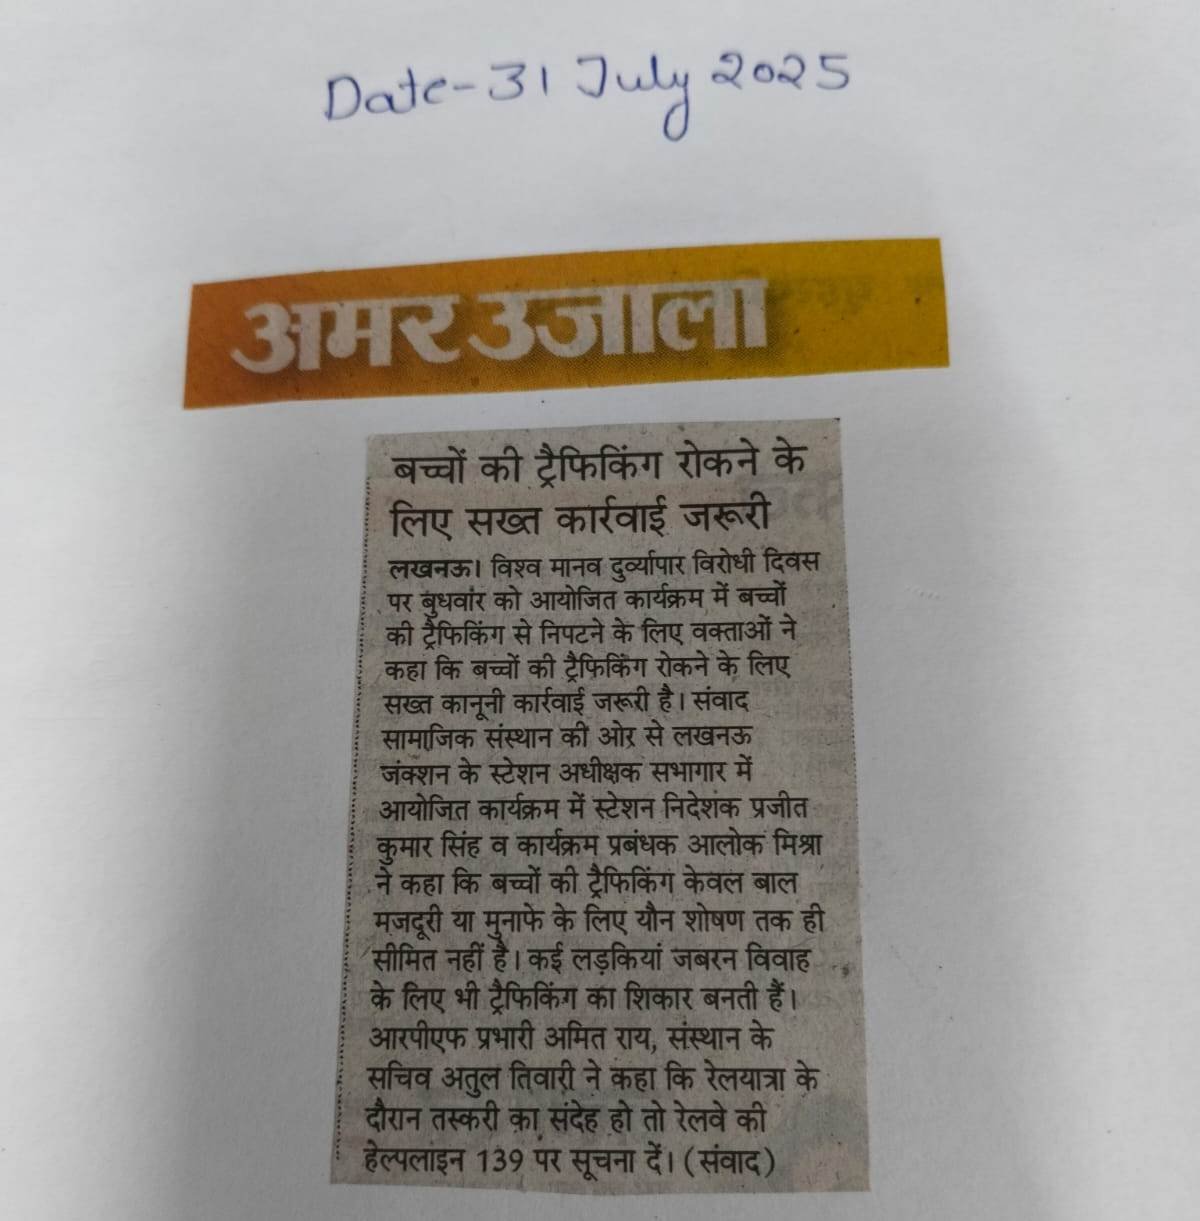 Date-31 July 2025
अमर उजाला
बच्चों की ट्रैफिकिंग रोकने के
लिए सख्त कार्रवाई जरूरी
लखनऊ। विश्व मानव दुर्व्यापार विरोधी दिवस
पर बुधवार को आयोजित कार्यक्रम में बच्चों
की ट्रैफिकिंग से निपटने के लिए वक्ताओं ने
कहा कि बच्चों की ट्रैफिकिंग रोकने के लिए
सख्त कानूनी कार्रवाई जरूरी है। संवाद
सामाजिक संस्थान की ओर से लखनऊ
जंक्शन के स्टेशन अधीक्षक सभागार में
आयोजित कार्यक्रम में स्टेशन निदेशक प्रजीत
कुमार सिंह व कार्यक्रम प्रबंधक आलोक मिश्रा
ने कहा कि बच्चों की ट्रैफिकिंग केवल बाल
मजदूरी या मुनाफे के लिए यौन शोषण तक ही
सीमित नहीं है। कई लड़कियां जबरन विवाह
के लिए भी ट्रैफिकिंग का शिकार बनती हैं।
आरपीएफ प्रभारी अमित राय, संस्थान के
सचिव अतुल तिवारी ने कहा कि रेलयात्रा के
दौरान तस्करी का संदेह हो तो रेलवे की
हेल्पलाइन 139 पर सूचना दें। (संवाद)